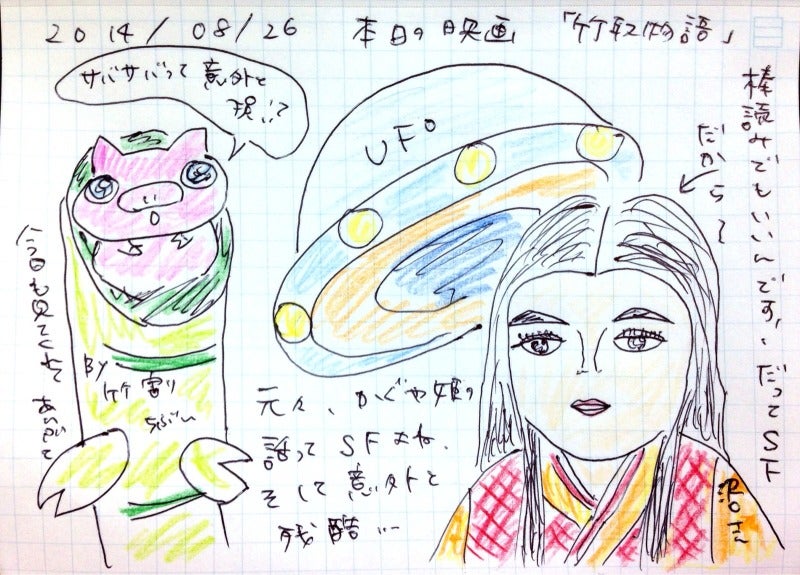 2014/08/26 本日の映画 「竹取物語」
サバサバって 意外と
UFO
棒読みでもいいんです、だってSF
だから〜
今日も見てくれて
BY
竹割り
元々、かぐや姫の
話って SFよね、
そして意外と
残酷…